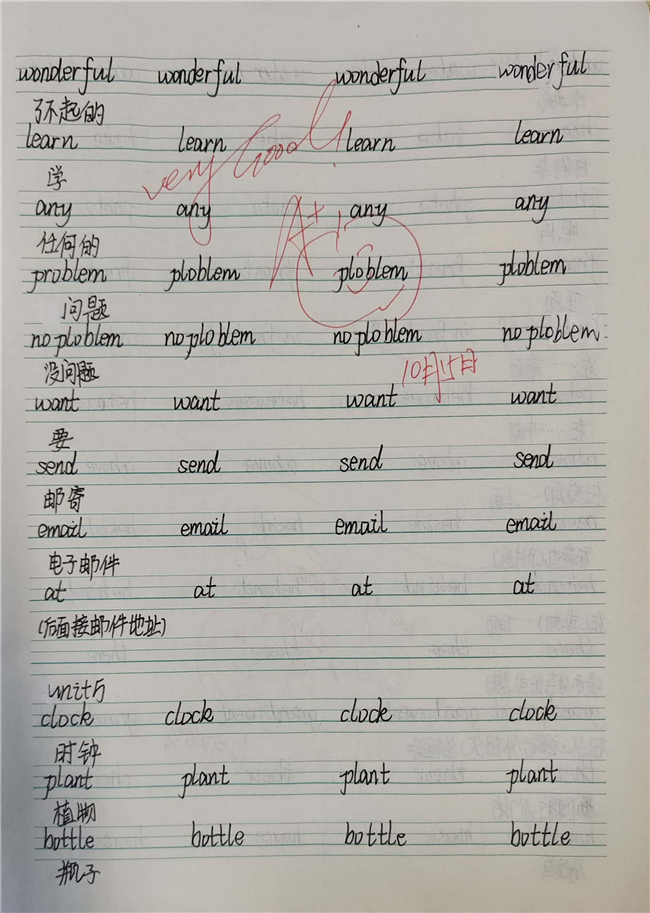 wonderful wonderful wonderful wonderful
了不起的
learn learn learn learn
very Good
学
any any any any
A++
任何的
problem ploblem ploblem ploblem
问题
no ploblem no ploblem no ploblem no ploblem.
没问题
10月15日
want want want want
要
send send send send
邮寄
email email email email
电子邮件
at at at at
(后面接邮件地址)
unit5
clock clock clock clock
时钟
plant plant plant plant
植物
bottle bottle bottle bottle
瓶子